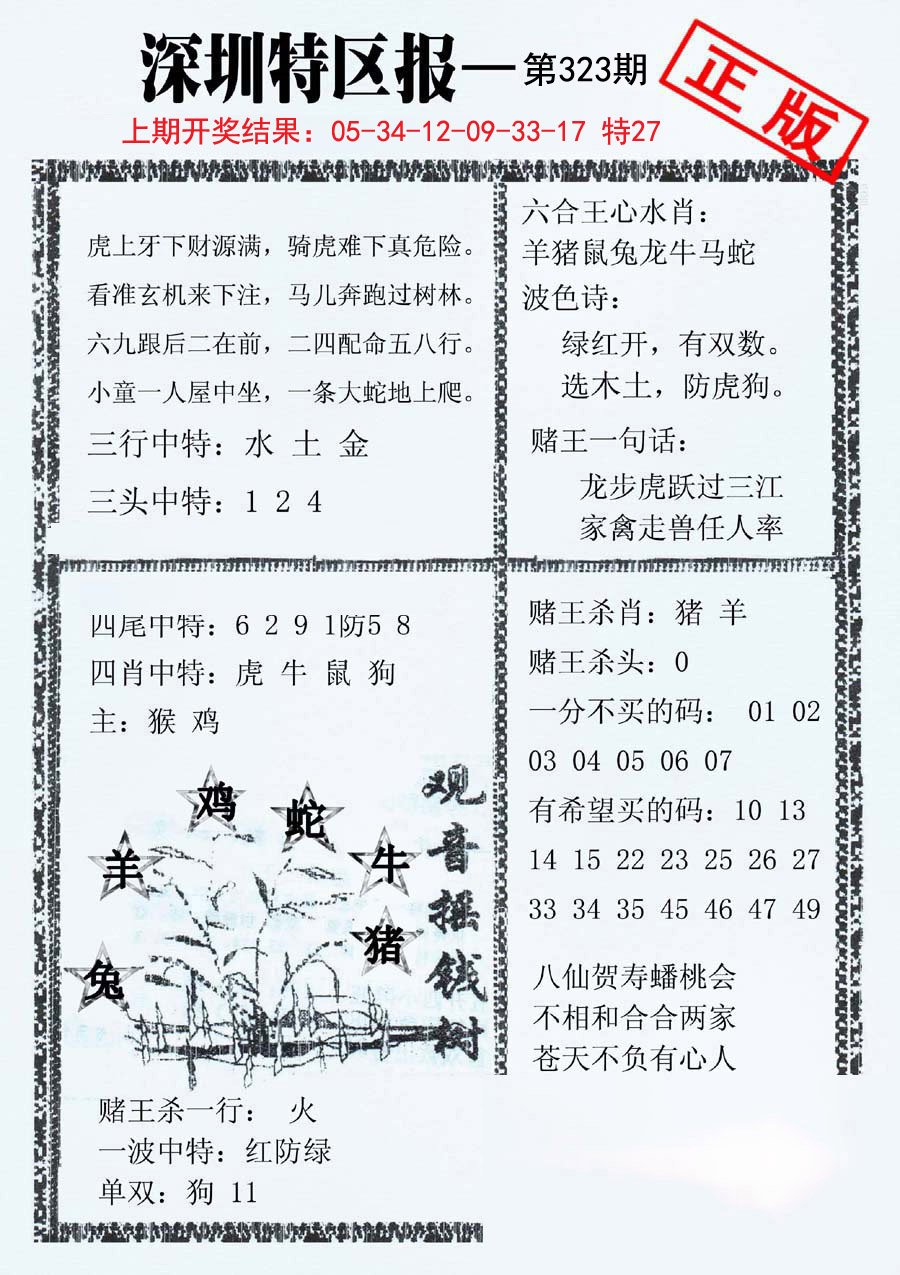 深圳特区报—第323期
正版
上期开奖结果：05-34-12-09-33-17 特27
虎上牙下财源满，骑虎难下真危险。
看准玄机来下注，马儿奔跑过树林。
六九跟后二在前，二四配命五八行。
小童一人屋中坐，一条大蛇地上爬。
三行中特：水 土 金
三头中特：1 2 4
六合王心水肖：
羊猪鼠兔龙牛马蛇
波色诗：
绿红开，有双数。
选木土，防虎狗。
赌王一句话：
龙步虎跃过三江
家禽走兽任人率
四尾中特：6 2 9 1防5 8
四肖中特：虎 牛 鼠 狗
主：猴 鸡
鸡
蛇
羊
牛
猪
兔
观音摇钱树
赌王杀一行： 火
一波中特：红防绿
单双：狗 11
赌王杀肖：猪 羊
赌王杀头：0
一分不买的码： 01 02
03 04 05 06 07
有希望买的码：10 13
14 15 22 23 25 26 27
33 34 35 45 46 47 49
八仙贺寿蟠桃会
不相和合合两家
苍天不负有心人